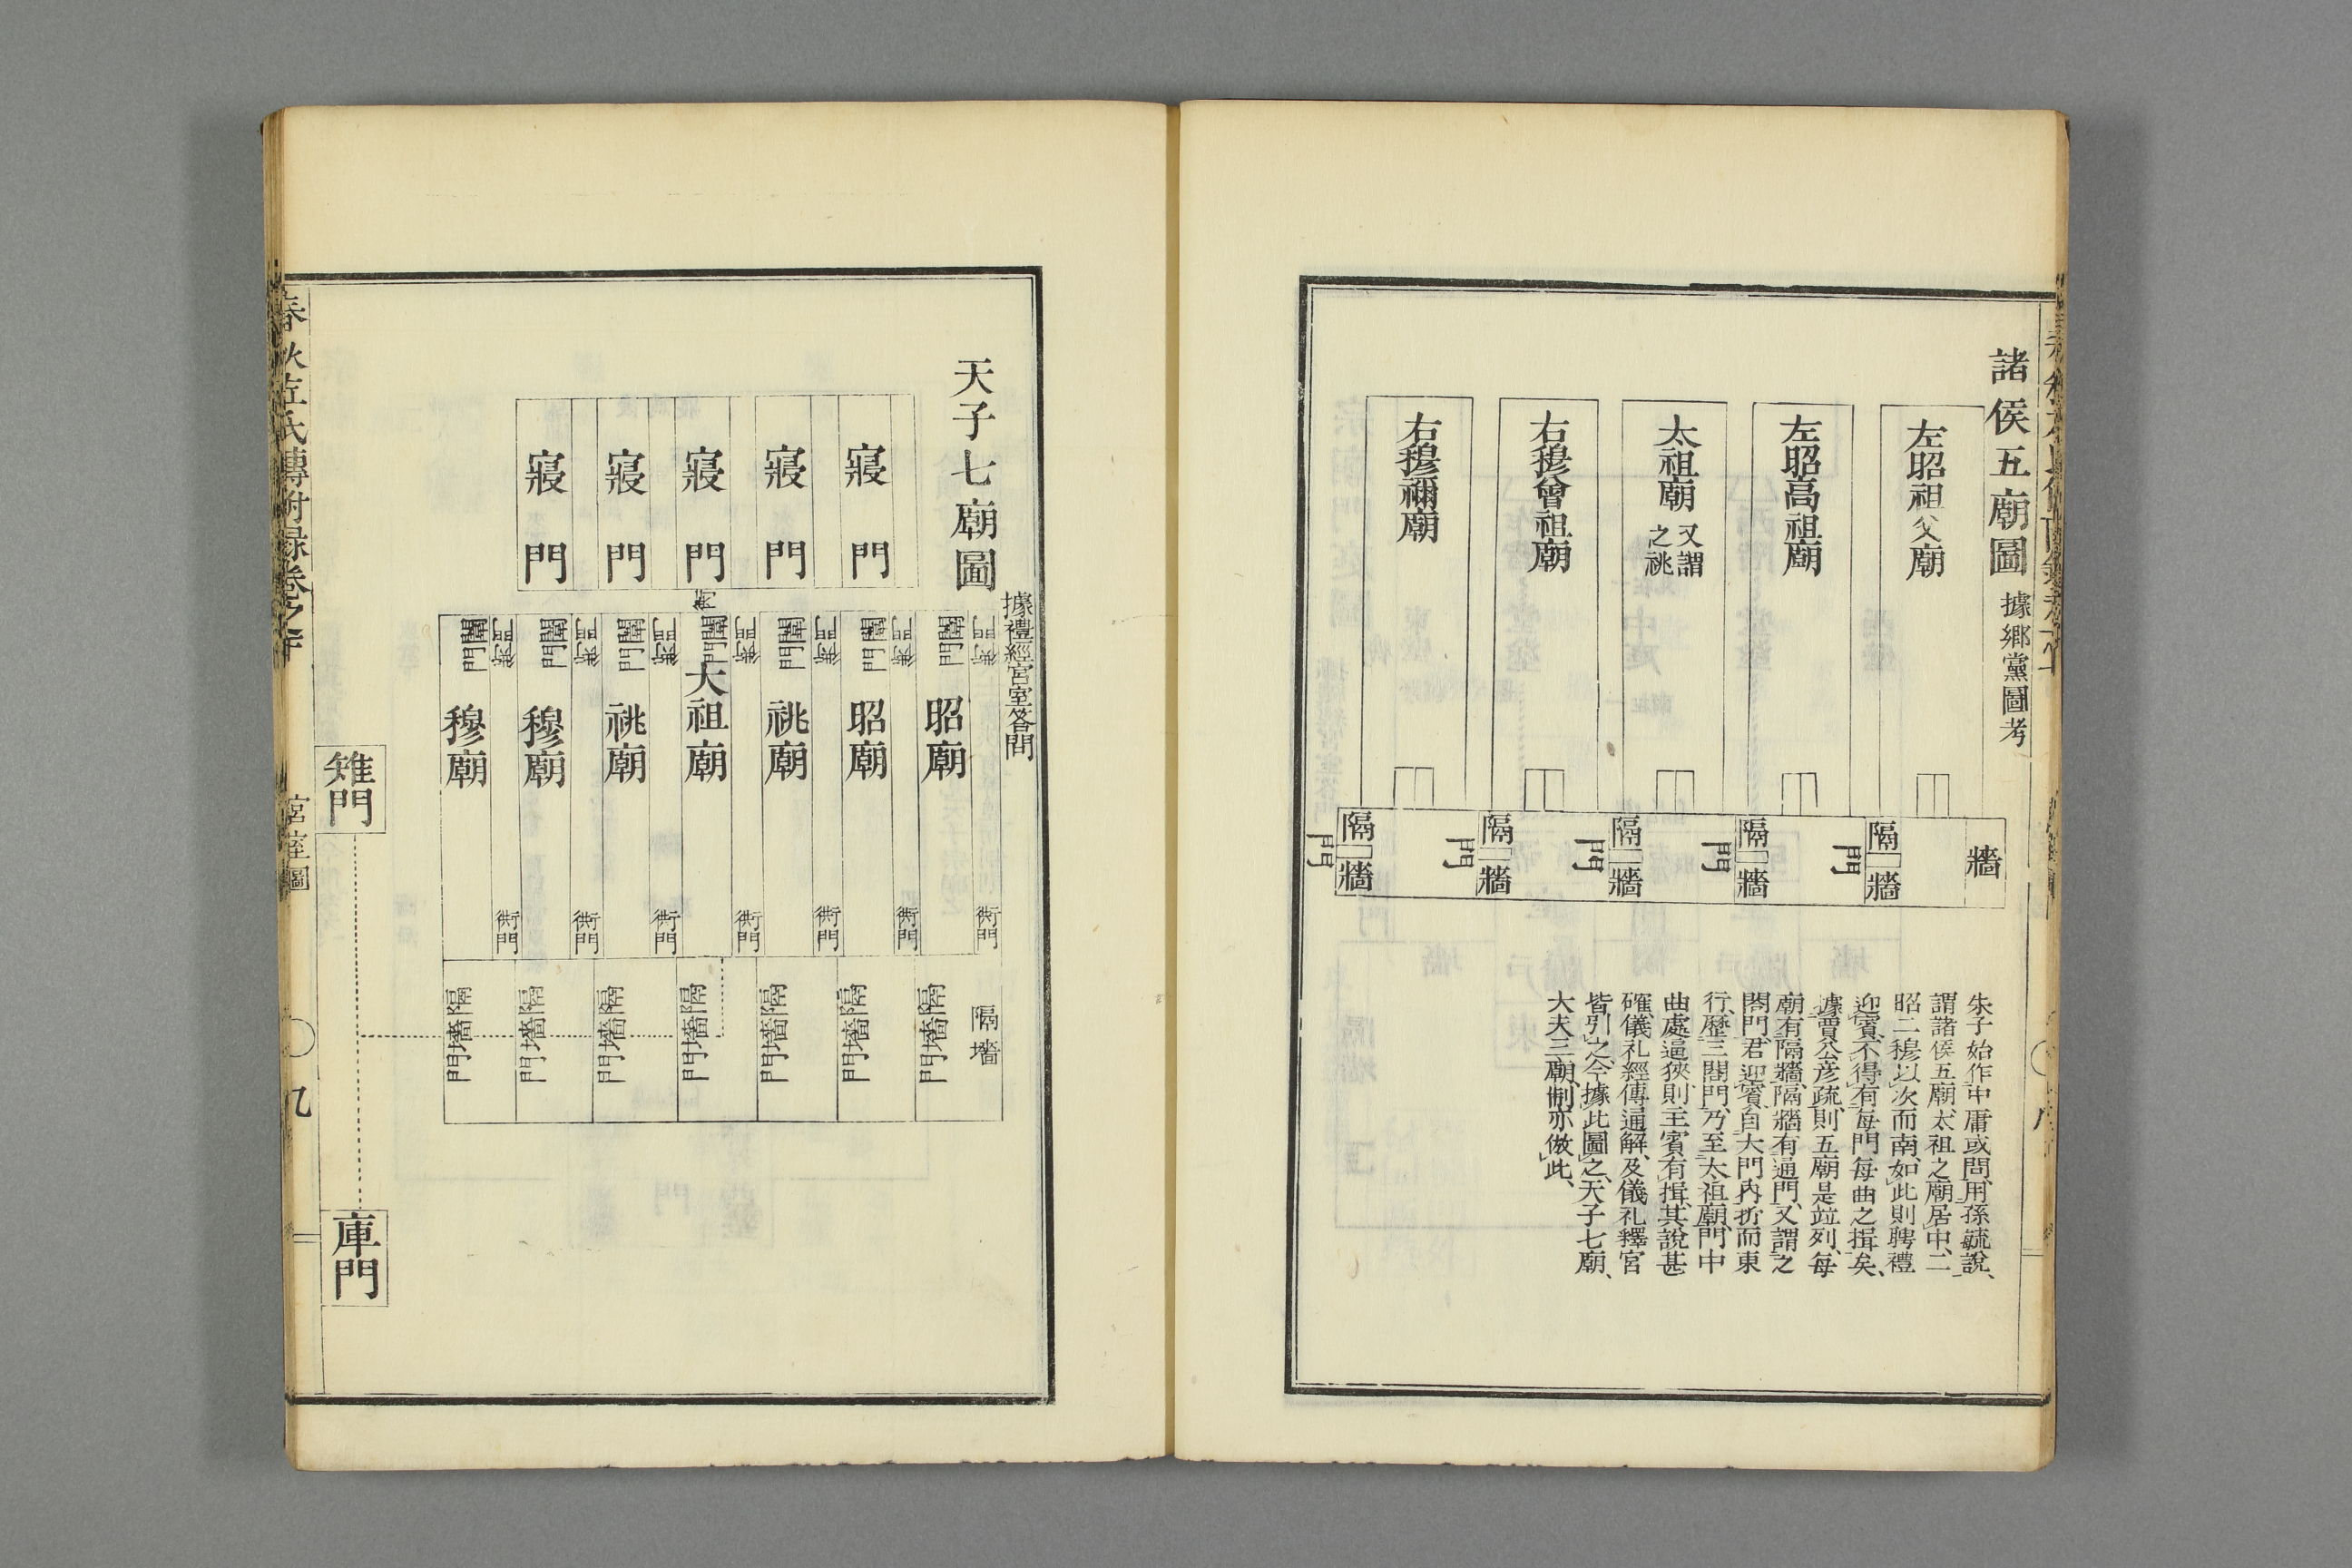 諸侯五廟圖 據鄉黨圖考
左昭祖父廟
左昭高祖廟
太祖廟 又謂之祧
右穆曾祖廟
右穆禰廟
牆
隔牆 門
隔牆 門
隔牆 門
隔牆 門
隔牆 門
朱子始作中庸或問、用孫毓說、
謂諸侯五廟、太祖之廟居中、二
昭二穆以次而南、如此則聘禮
迎賓、不得有每門每曲之揖矣、
據賈公彥疏、則五廟是竝列、每
廟有隔牆、隔牆有通門、又謂之
閤門、君迎賓、自大門內折而東
行、歷三閤門、乃至太祖廟、門中
曲處逼狹、則主賓有揖、其說甚
確、儀礼經傳通解、及儀礼釋宮
皆引之、今據此圖之、天子七廟、
大夫三廟、制亦倣此、
天子七廟圖
據禮經宮室答問
寢 門
寢 門
寢 門
寢 門
寢 門
闈門
闈門
闈門
闈門
闈門
闈門
闈門
昭廟
昭廟
祧廟
大祖廟
祧廟
穆廟
穆廟
衖門
衖門
衖門
衖門
衖門
衖門
衖門
隔墻
隔墻門
隔墻門
隔墻門
隔墻門
隔墻門
隔墻門
隔墻門
雉門
庫門
春秋左氏傳附録卷之 宮室圖 九